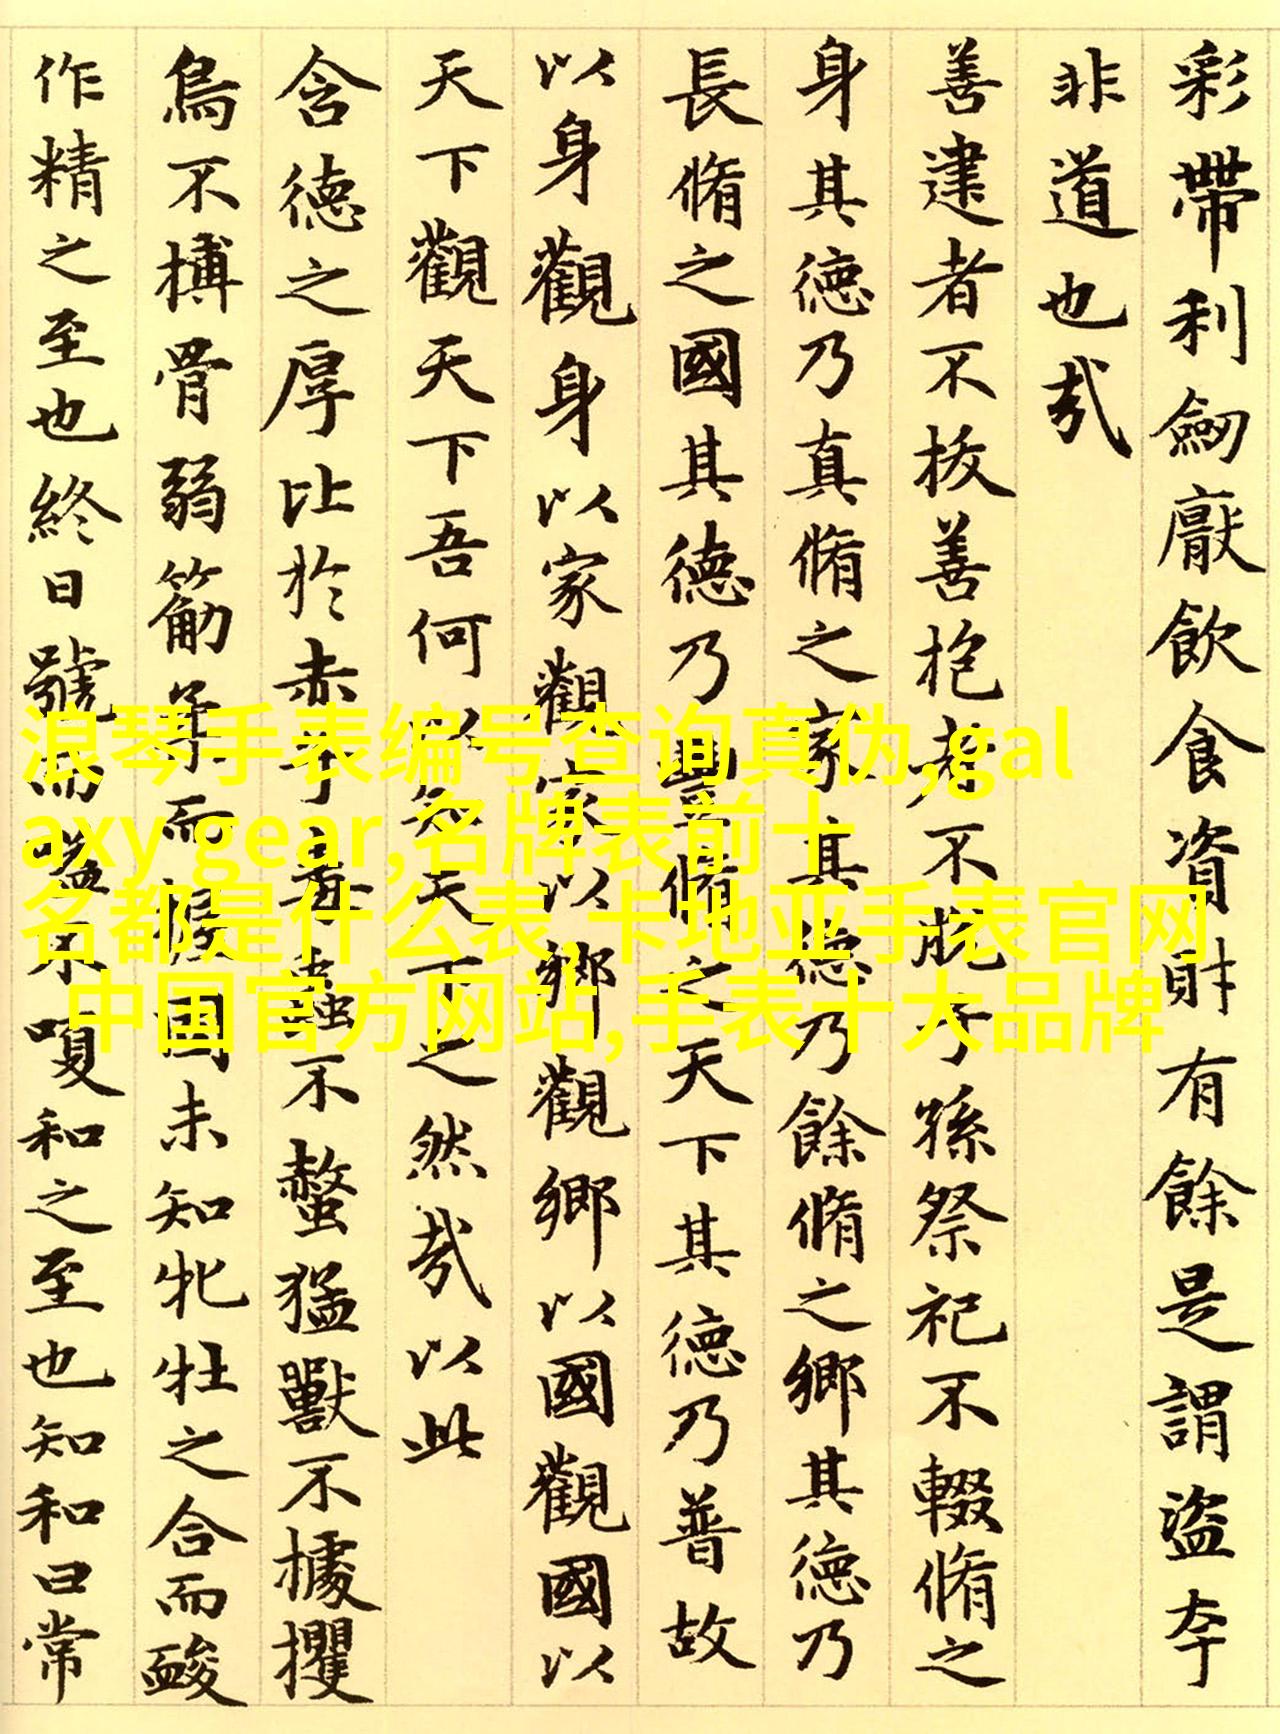 彩帶利劒厭飲食資財有餘是謂盜夸
非道也㢤
善建者不拔善抱者不脫子孫祭祀不輟脩之
身其德乃真脩之家其德乃餘脩之鄉其德乃
長脩之國其德乃豐脩之天下其德乃普故
以身觀身以家觀家以鄉觀鄉以國觀國以
天下觀天下吾何以知天下之然㢤以此
含德之厚比於赤子毒蟲不螫猛獸不據攫
鳥不搏骨弱筋柔而握固未知牝牡之合而酸
作精之至也終日號而嗌不嗄和之至也知和曰常
浪琴手表编号查询真伪,gal
axy gear,名牌表前十
名都是什么表,卡地亚手表官网
中国官方网站,手表十大品牌